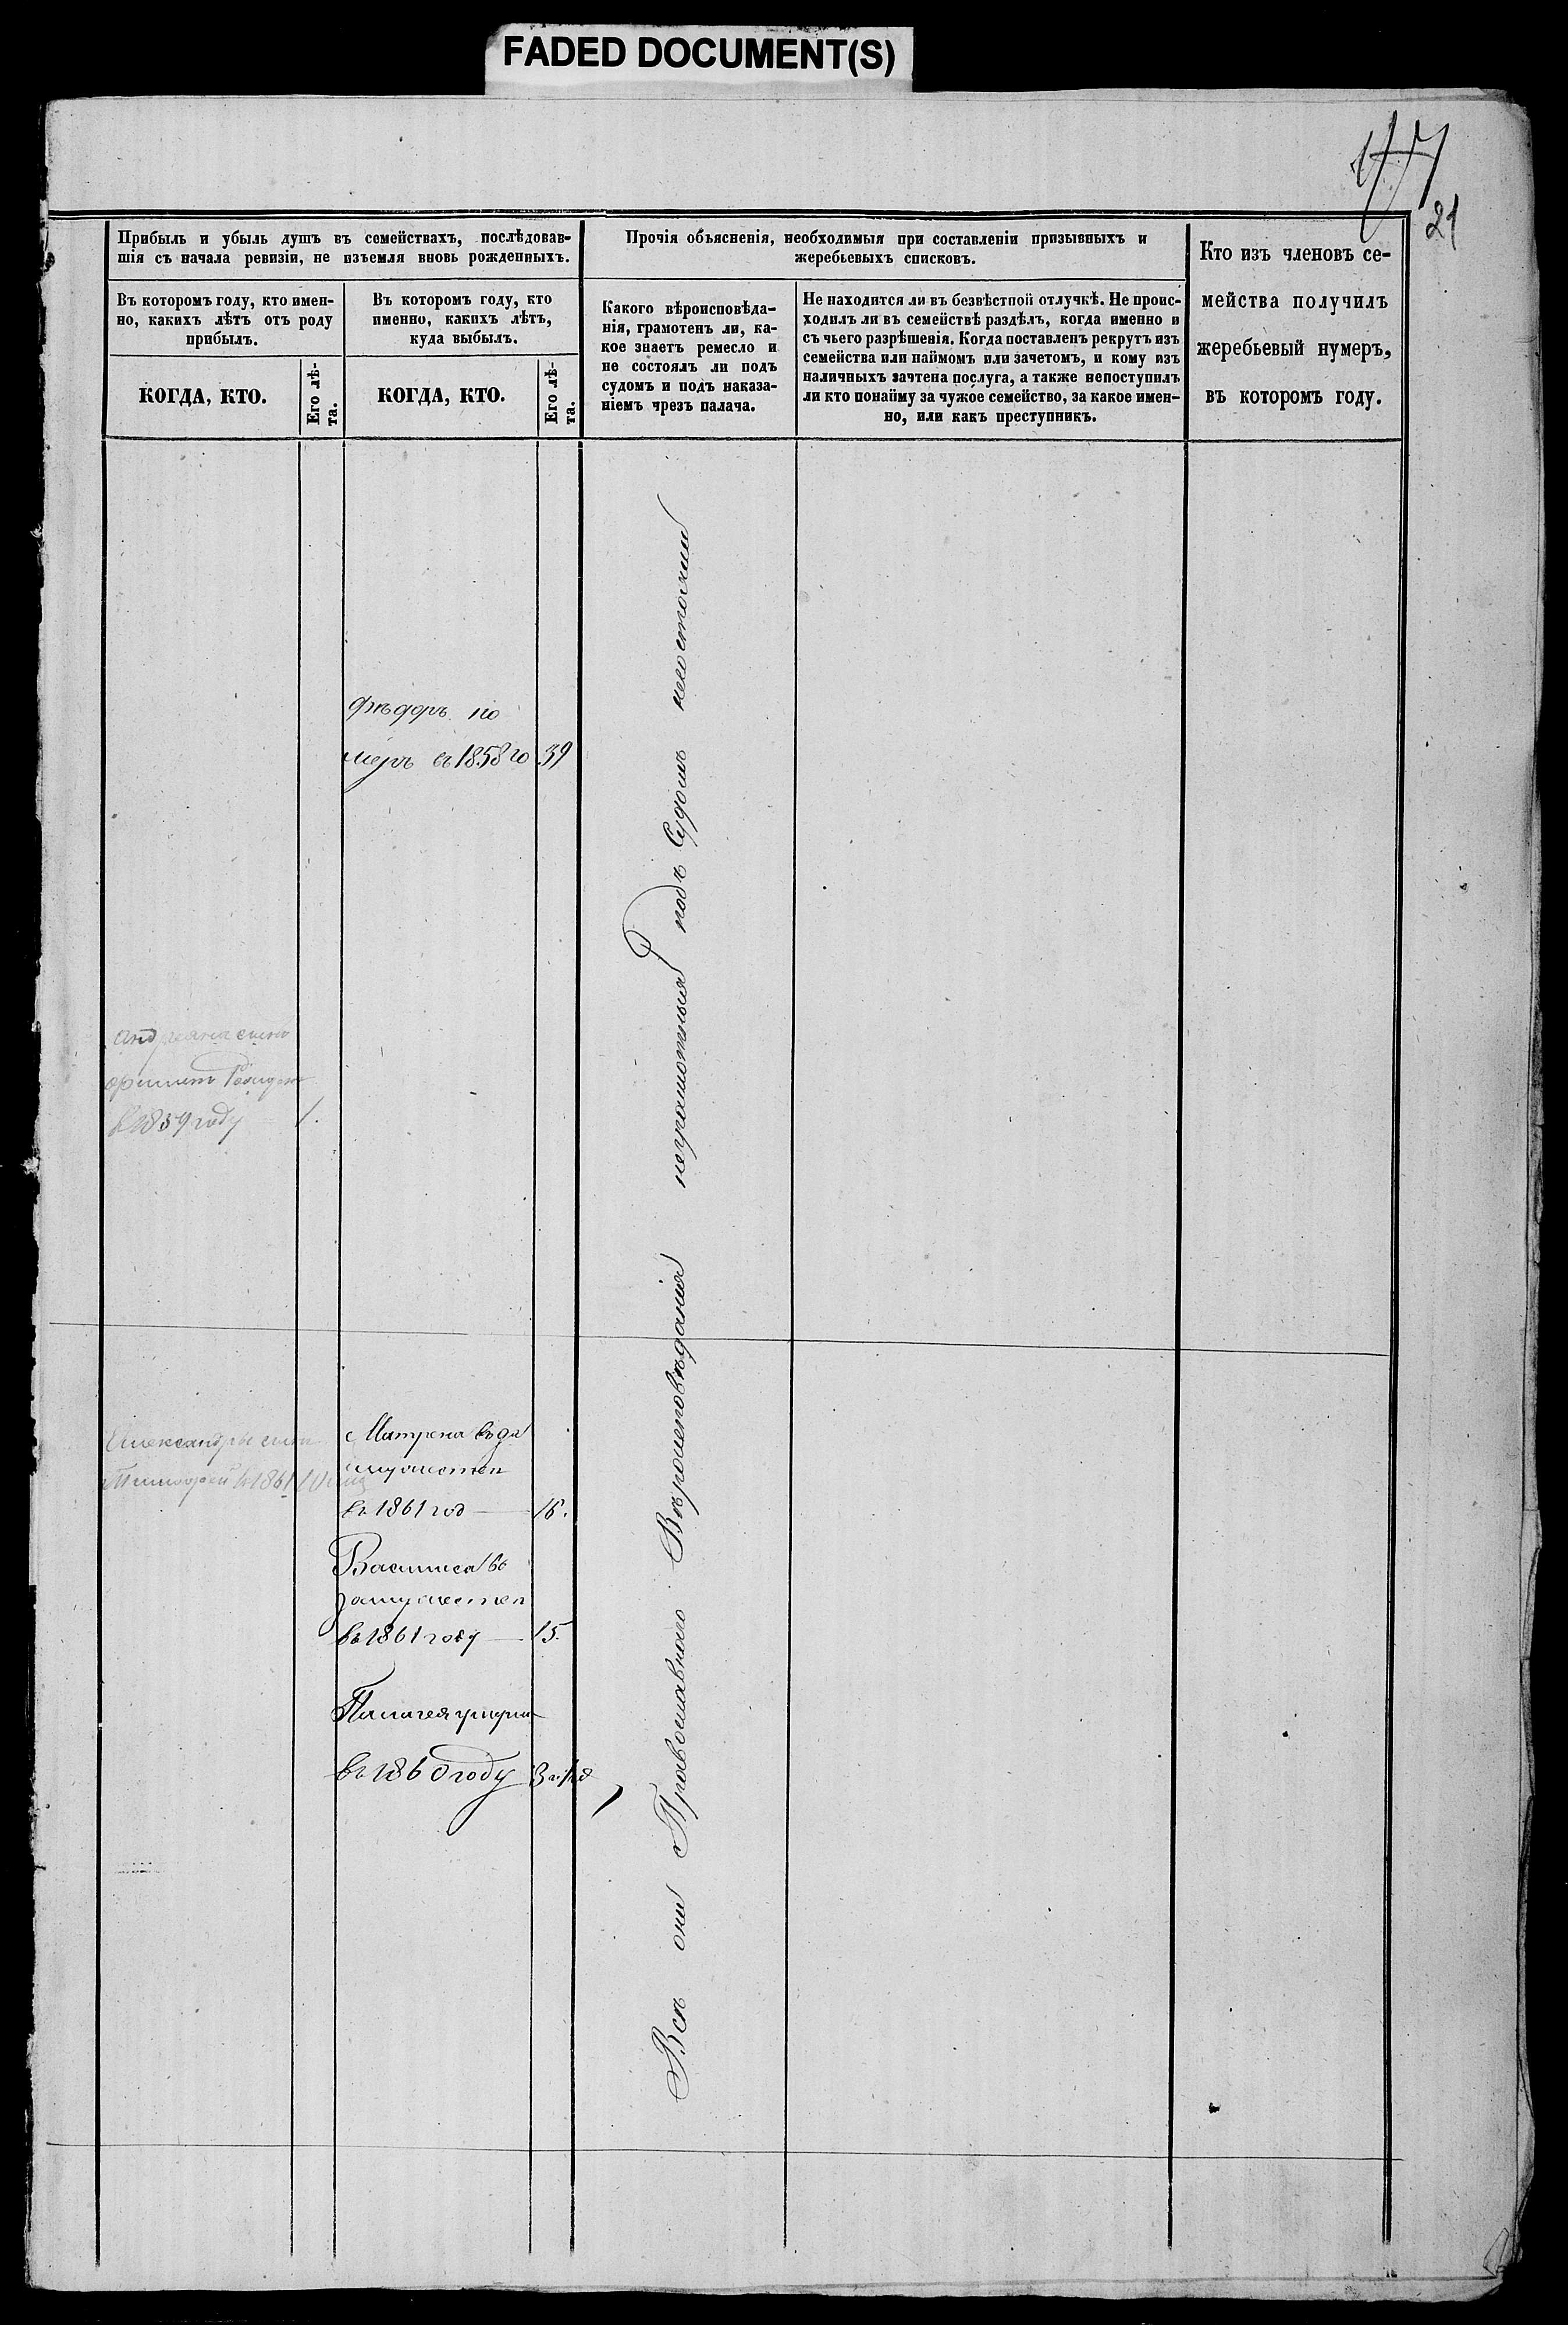 FADED DOCUMENT(S)
21
Прибыль и убыль душъ въ семействахъ, послѣдовав-
шія съ начала ревизіи, не изъемля вновь рожденныхъ.
Въ которомъ году, кто имен-
но, какихъ лѣтъ отъ роду
прибылъ.
КОГДА, КТО.
Его лѣ-
та.
Въ которомъ году, кто
именно, какихъ лѣтъ,
куда выбылъ.
КОГДА, КТО.
Его лѣ-
та.
Прочія объясненія, необходимыя при составленіи призывныхъ и
жеребьевыхъ списковъ.
Какого вѣроисповѣда-
нія, грамотенъ ли, ка-
кое знаетъ ремесло и
не состоялъ ли подъ
судомъ и подъ наказа-
ніемъ чрезъ палача.
Не находится ли въ безвѣстной отлучкѣ. Не проис-
ходилъ ли въ семействѣ раздѣлъ, когда именно и
съ чьего разрѣшенія. Когда поставленъ рекрутъ изъ
семейства или наймомъ или зачетомъ, и кому изъ
наличныхъ зачтена послуга, а также непоступилъ
ли кто понайму за чужое семейство, за какое имен-
но, или какъ преступникъ.
Кто изъ членовъ се-
мейства получилъ
жеребьевый нумеръ,
въ которомъ году.
Фѣдоръ по
меръ въ 1858 го 39
андреяна сынъ
в 1859 году 1.
Александры сынъ
Тимофей в 1861
Матрена
въ 1861 год 16.
Василиса во
замужествѣ
въ 1861 году 15.
Палагея
въ 1860 году
Всѣ они Православнаго Вѣроисповѣданія неграмотныя подъ Судомъ несостояли